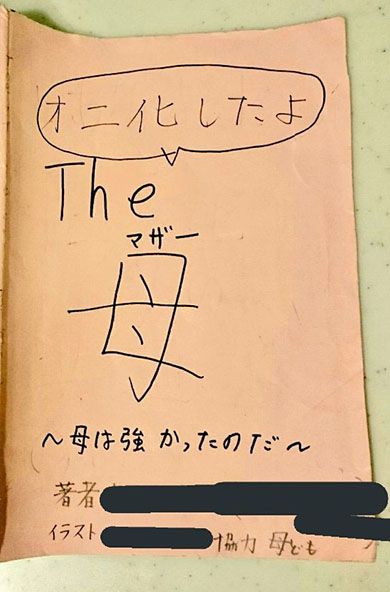 オニ化したよ
The
マザー
母
～母は強かったのだ～
著者
イラスト 協力 母ども